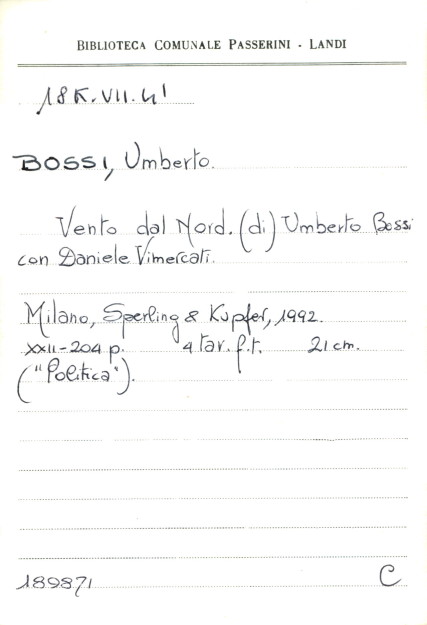 BIBLIOTECA COMUNALE PASSERINI - LANDI
18 K.VII.41
BOSSI, Umberto.
Vento dal Nord. (di) Umberto Bossi
con Daniele Vimercati.
Milano, Sperling & Kupfer, 1992.
XXII-204 p. 4 tav. f.t. 21 cm.
("Politica").
189871 C